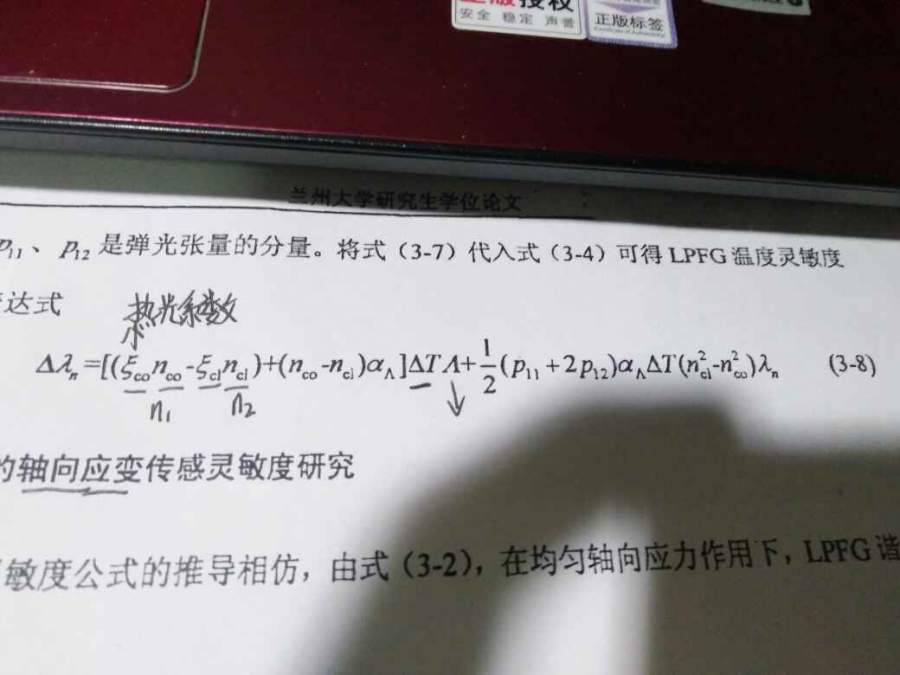 正版授权
安全 稳定 声誉
正版标签
兰州大学研究生学位论文
p₁₁、 p₁₂ 是弹光张量的分量。将式（3-7）代入式（3-4）可得 LPFG 温度灵敏度
达式
热光系数
Δλₙ=[(ξ_co n_co-ξ_cl n_cl)+(n_co-n_cl)α_Λ]ΔTΛ+1/2(p₁₁+2p₁₂)α_ΛΔT(n²_cl-n²_co)λₙ (3-8)
n₁ n₂
的轴向应变传感灵敏度研究
敏度公式的推导相仿，由式（3-2），在均匀轴向应力作用下，LPFG 谐